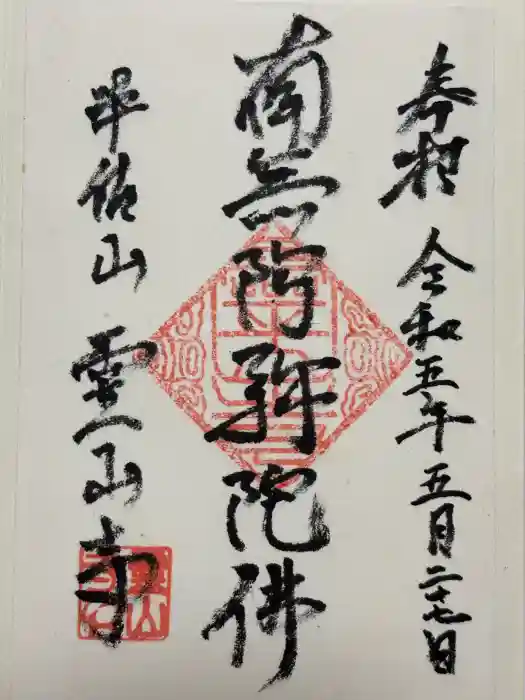 奉拝 令和五年五月二十七日
南無阿弥陀佛
平佐山 霊山寺